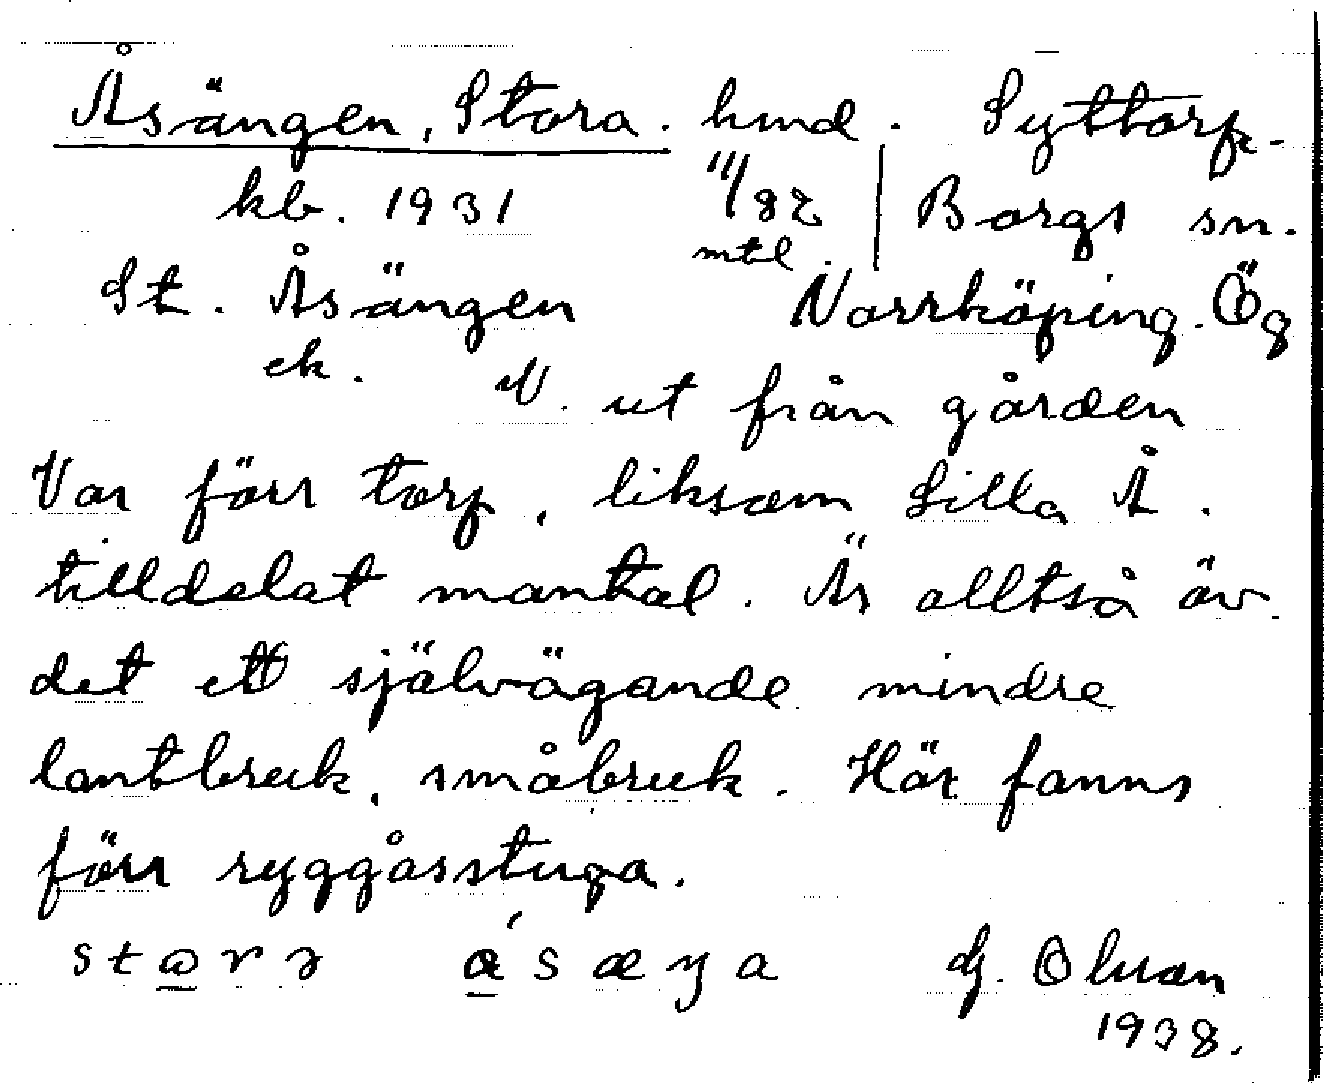 Åsängen, Stora. hmd. Syttorp.
kb. 1931 11/82 mtl. Borgs sn.
St. Åsängen Norrköping. Ög
ek. N. ut från gården
Var förr torp, liksom Lilla Å.
tilldelat mantal. Är alltså äv.
det ett självägande mindre
lantbruk, småbruk. Här fanns
förr ryggåsstuga.
1938.